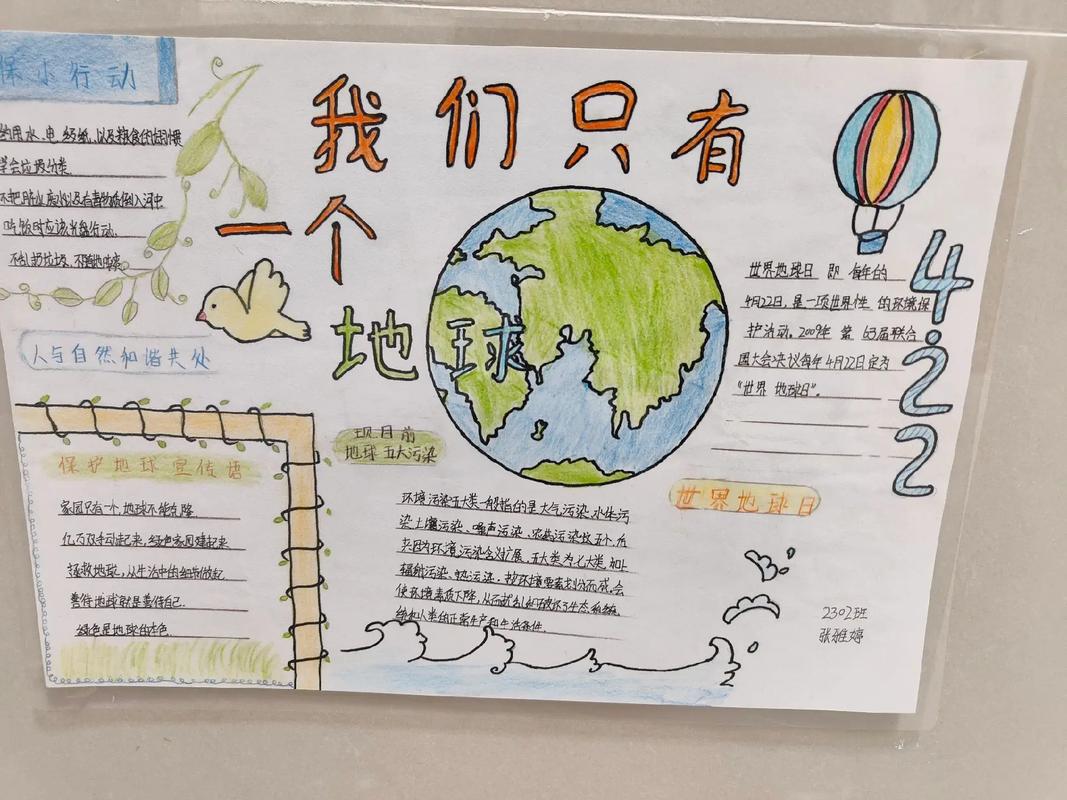 我们只有
一个
地球
保小行动
约用水、电、纸,以及粮食的好习惯
学会垃圾分类
不把脏水废水以及有毒物质倒入河中
吃饭时应该光盘行动.
不乱扔垃圾,不随地吐痰
人与自然和谐共处
保护地球宣传语
家园只有一个,地球不能克隆
亿万双手动起来,绿色家园建起来
拯救地球,从生活中的细节做起
善待地球就是善待自己.
绿色是地球的本色.
现目前
地球五大污染
环境污染五大一般指的是大气污染、水体污
染、土壤污染、噪声污染、农药污染这五个,后
来因为环境污染含义扩展,五大类为七大类,加上
辐射污染、热污染.按环境要素划分而成,会
使环境素质下降,从而扰乱和破坏了生态系统
给和人类的正常生产和生活条件.
世界地球日 即 每年的
4月22日,是一项世界性 的环境保
护活动.2009年 第 63届联合
国大会决议每年4月22日定为
"世界 地球日".
4.22
世界地球日
2302班
张雅婷